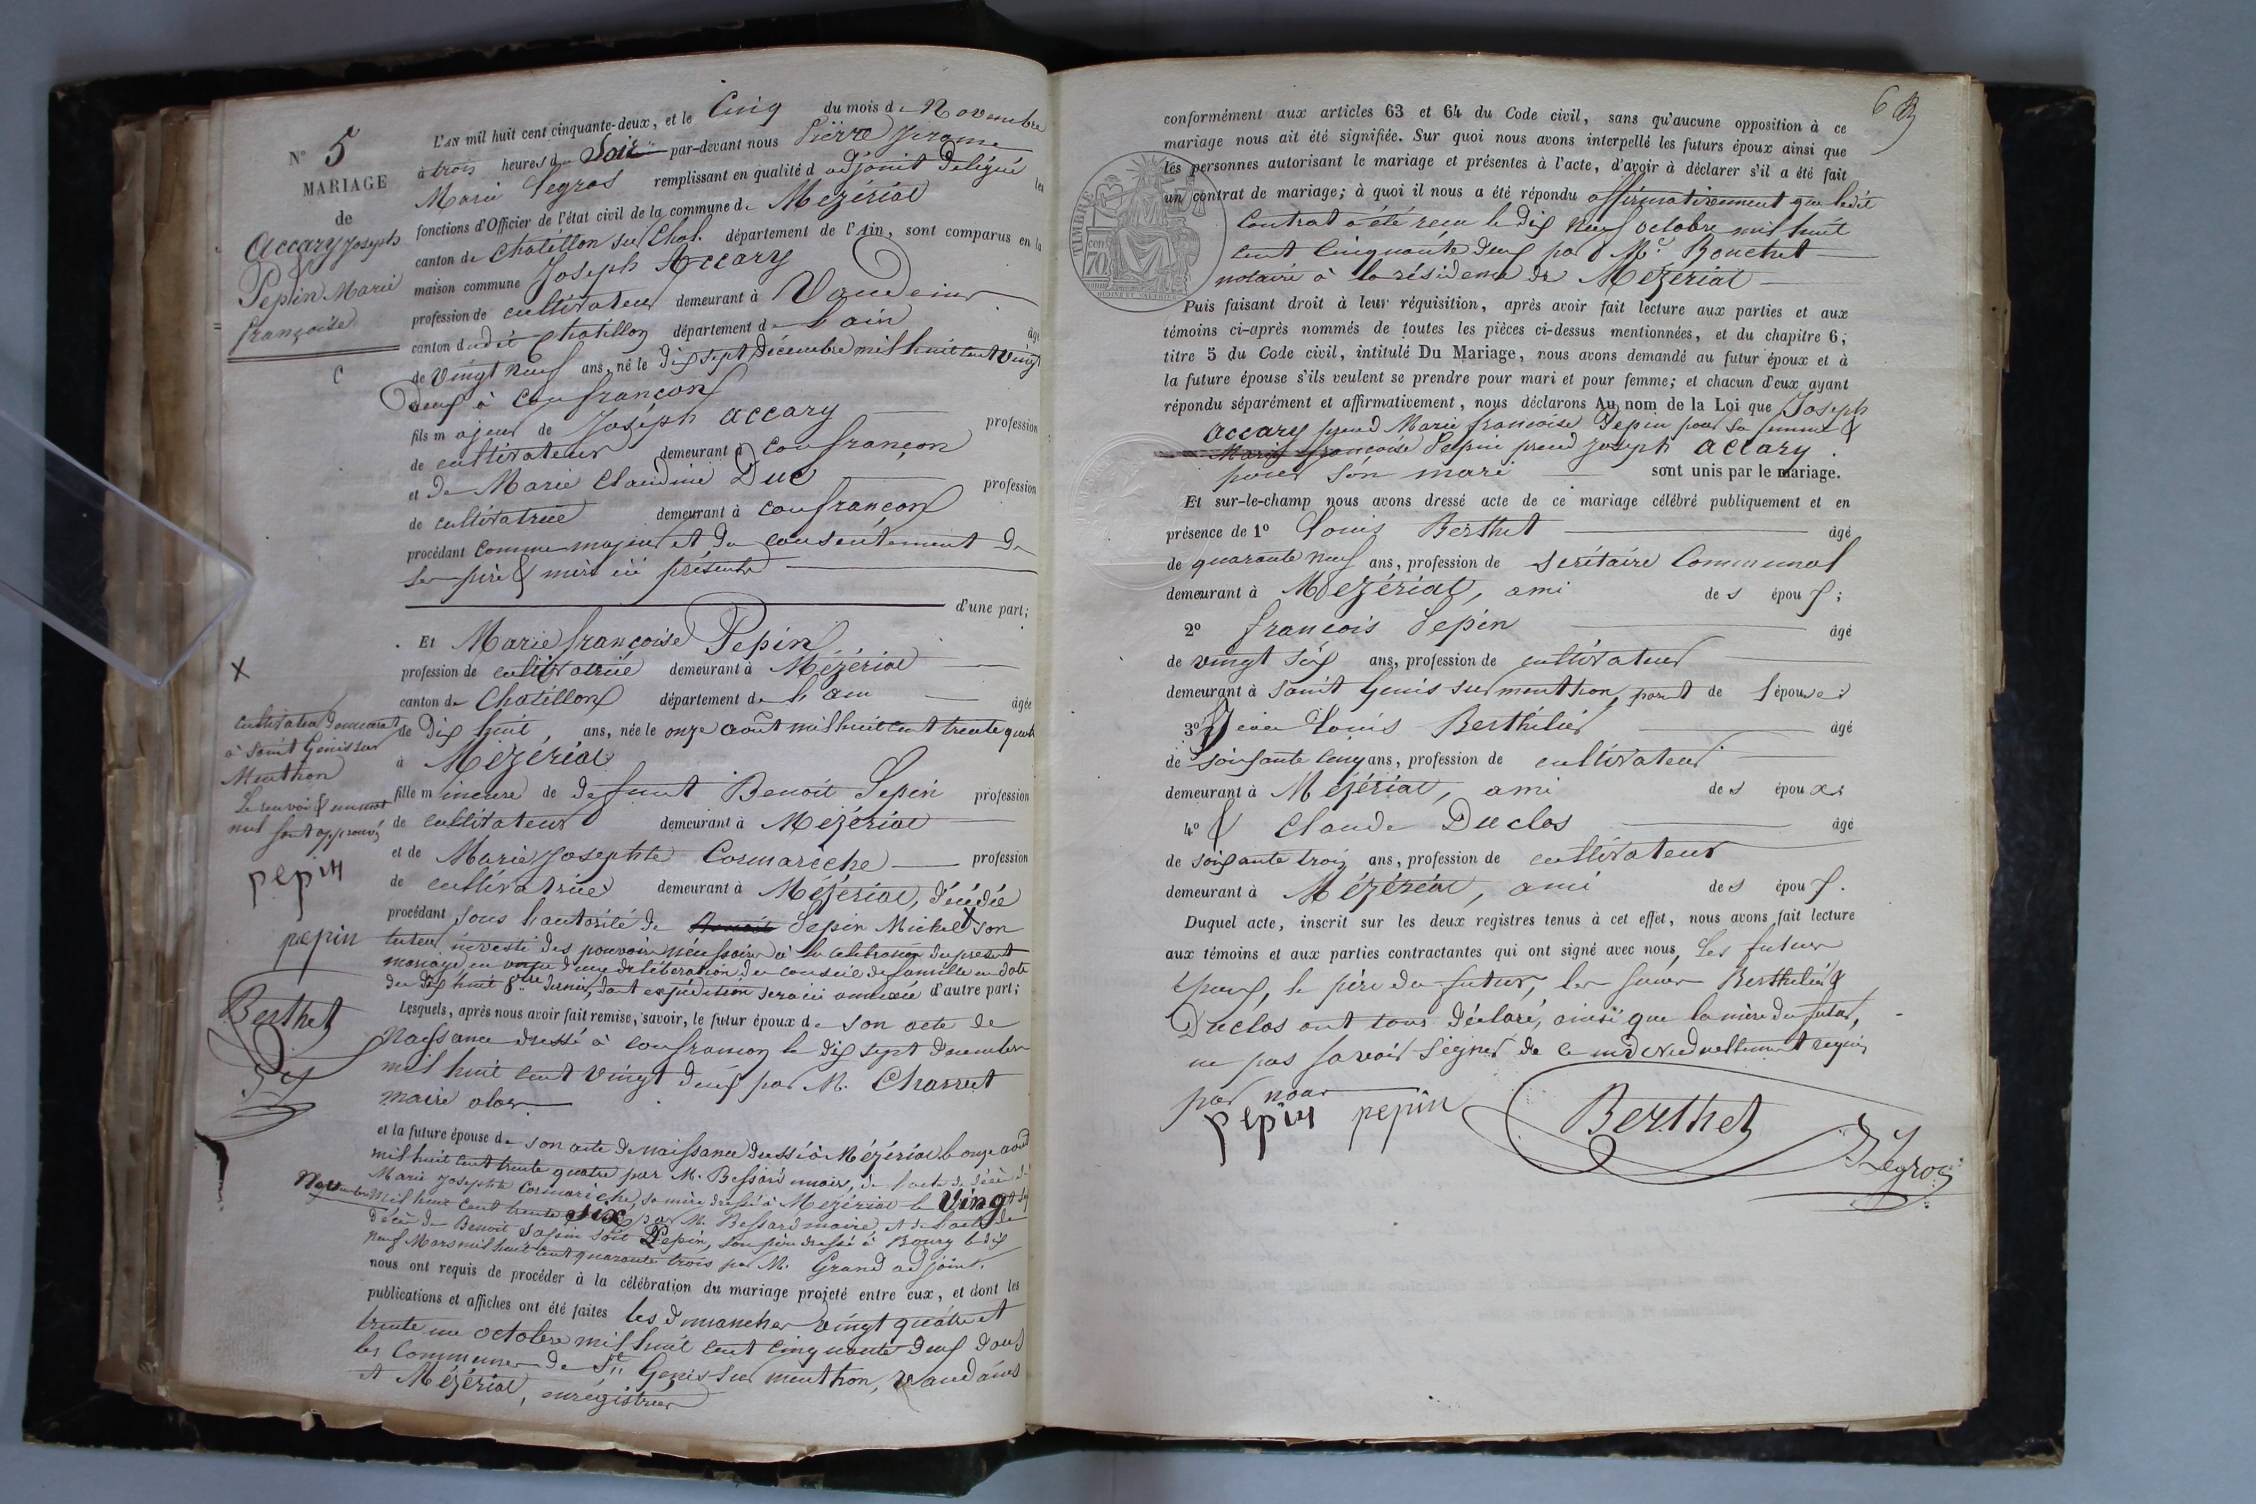 N° 5
MARIAGE
de
Accary Joseph
Pepin Marie
françoise
C
L'AN mil huit cent cinquante-deux, et le Cinq du mois de Novembre
à trois heures du Soir par-devant nous Pierre Jerome
Marie Legros remplissant en qualité d'adjoint Délégué les
fonctions d'Officier de l'état civil de la commune de Mézériat
canton de Chatillon sur Chal. département de l'Ain, sont comparus en la
maison commune Joseph Accary
profession de cultivateur demeurant à Vandeins
canton dudit Chatillon département de l'ain âgé
de Vingt Neuf ans, né le Dix sept Décembre mil huit cent vingt
Deux à Confrançon
fils majeur de Joseph Accary profession
de cultivateur demeurant à Confrançon
et de Marie Claudine Duc profession
de cultivatrice demeurant à Confrançon
procédant Comme majeur et du consentement de
ses père & mère ici présents
d'une part;
Et Marie françoise Pepin
profession de cultivatrice demeurant à Mézériat
canton de Chatillon département de l'ain âgée
de Dix huit, ans, née le onze aout mil huit cent trente quatre
à Mézériat
fille mineure de defunt Benoit Pepin profession
de cultivateur demeurant à Mézériat
et de Marie Josephte Cormarèche profession
de cultivatrice demeurant à Mézériat, décédée
procédant sous l'autorité de Pepin Michel X son
tuteur investi des pouvoirs nécessaires à la célébration du present
mariage en vertu d'une délibération du conseil de famille en date
du dix huit 8bre dernier, dont expédition sera ici annexée d'autre part;
X
cultivateur demeurant
à Saint Genis sur
Menthon
Le renvoi & un mot
nul sont approuvés
pepin
pepin
Berthet
Lesquels, après nous avoir fait remise, savoir, le futur époux de son acte de
Naissance dressé à Confrançon le dix sept Decembre
mil huit cent vingt deux par M. Charvet
maire alors
et la future épouse de son acte de naissance dressé à Mézériat le onze aout
mil huit cent trente quatre par M. Bessard maire, de l'acte de décès de
Marie Josephte Cormarèche, sa mère dressé à Mézériat le Vingt
Novembre mil huit cent trente six par M. Bessard maire, et de l'acte de
décès de Benoit Sapin soit Pepin, son père dressé à Bourg le dix
neuf Mars mil huit cent quarante trois par M. Grand adjoint.
nous ont requis de procéder à la célébration du mariage projeté entre eux, et dont les
publications et affiches ont été faites les dimanches vingt quatre et
trente un octobre mil huit cent cinquante deux dans
les Communes de St Genis sur menthon, Vandeins
et Mézériat, enregistrées
6
conformément aux articles 63 et 64 du Code civil, sans qu'aucune opposition à ce
mariage nous ait été signifiée. Sur quoi nous avons interpellé les futurs époux ainsi que
les personnes autorisant le mariage et présentes à l'acte, d'avoir à déclarer s'il a été fait
un contrat de mariage; à quoi il nous a été répondu affirmativement que ledit
Contrat a été recu le dix neuf octobre mil huit
cent Cinquante deux par Me Bouchet
notaire à la résidence de Mézériat
TIMBRE
cen
70
Puis faisant droit à leur réquisition, après avoir fait lecture aux parties et aux
témoins ci-après nommés de toutes les pièces ci-dessus mentionnées, et du chapitre 6,
titre 5 du Code civil, intitulé Du Mariage, nous avons demandé au futur époux et à
la future épouse s'ils veulent se prendre pour mari et pour femme; et chacun d'eux ayant
répondu séparément et affirmativement, nous déclarons Au nom de la Loi que Joseph
Accary prend Marie francoise Pepin pour sa femme &
Marie francoise Pepin prend Joseph Accary
pour son mari sont unis par le mariage.
Et sur-le-champ nous avons dressé acte de ce mariage célébré publiquement et en
présence de 1° Louis Berthet âgé
de quarante neuf ans, profession de secrétaire Communal
demeurant à Mézériat, ami des époux;
2° françois Pepin âgé
de vingt six ans, profession de cultivateur
demeurant à Saint Genis sur menthon, parent de l'épouse;
3° Jean Louis Berthilier âgé
de soixante cinq ans, profession de cultivateur
demeurant à Mézériat, ami des époux;
4° & Claude Duclos âgé
de soixante trois ans, profession de cultivateur
demeurant à Mézériat, ami des époux.
Duquel acte, inscrit sur les deux registres tenus à cet effet, nous avons fait lecture
aux témoins et aux parties contractantes qui ont signé avec nous, Les futurs
époux, le père du futur, les sieurs Berthilier &
Duclos ont tous déclaré, ainsi que la mère du futur,
ne pas savoir signer de ce individuellement requis
par nous
pepin pepin Berthet Legros